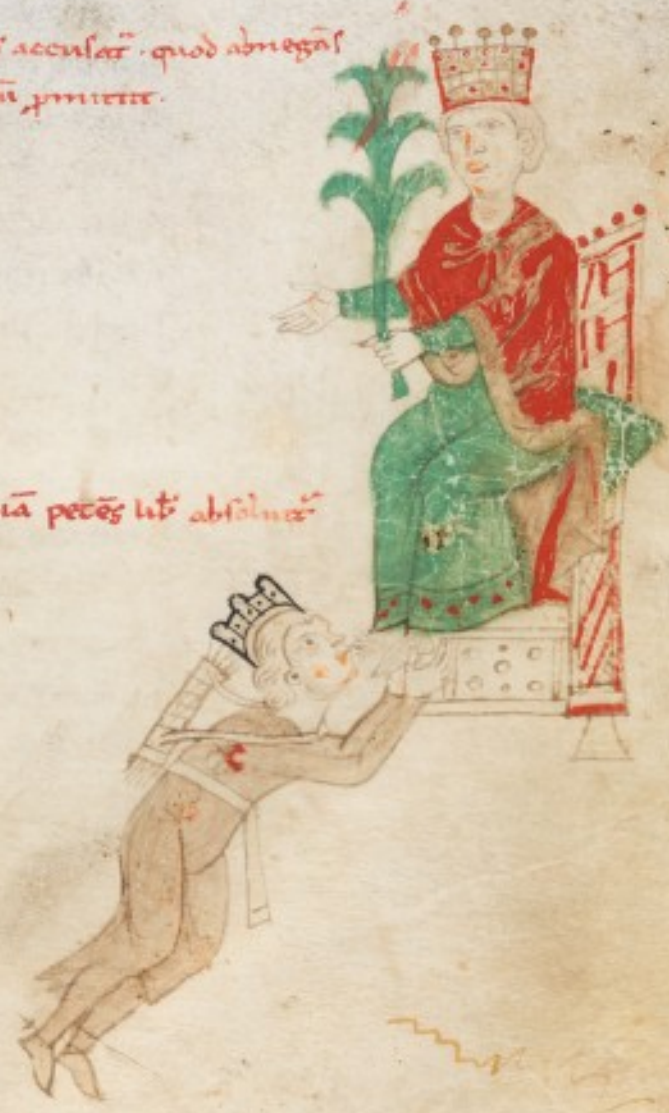 s accusat̄ . quod abnegās
ā pmittit.
iā petēs lib̄ absoluit̄